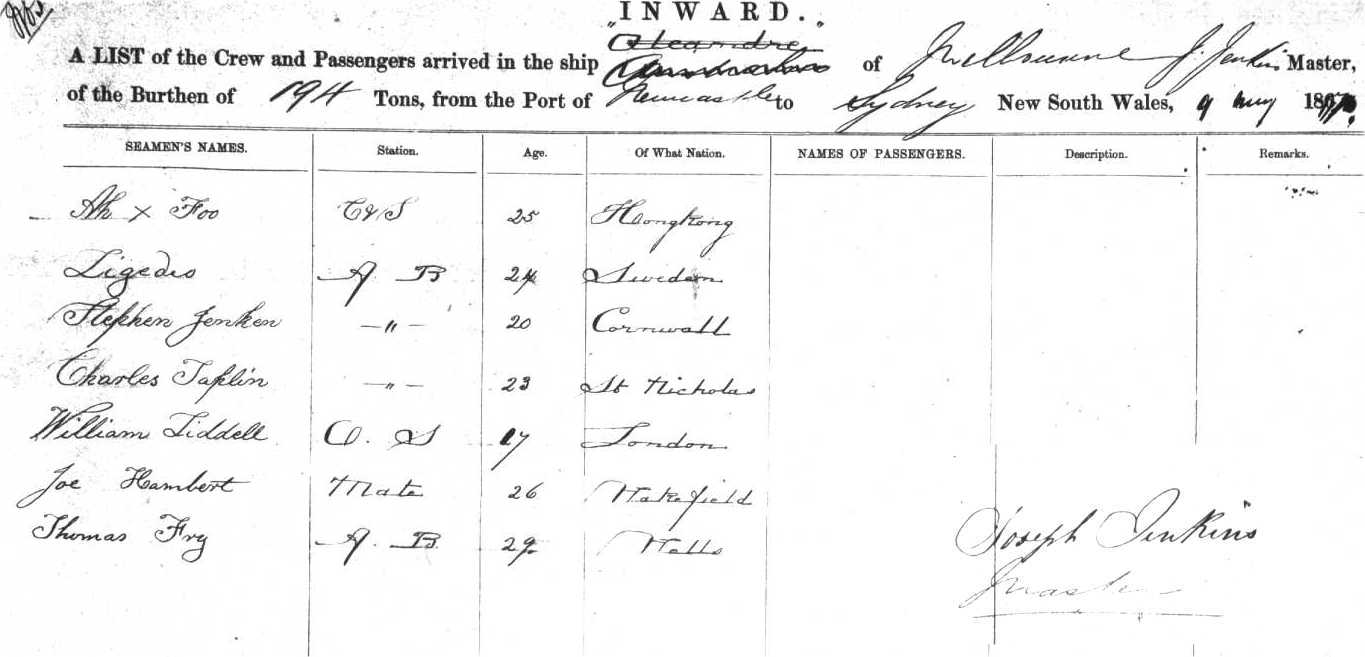 INWARD.
A LIST of the Crew and Passengers arrived in the ship of Melbourne J. Jenkins Master,
of the Burthen of 194 Tons, from the Port of Newcastle to Sydney New South Wales, 9
SEAMEN'S NAMES. Station. Age. Of What Nation. NAMES OF PASSENGERS. Description. Remarks.
Ah x Foo C&S 25 Hongkong
A. B 24 Sweden
Stephen Jenken —"— 20 Cornwall
Charles Taplin —"— 23 St Nicholas
William Liddell O. S 17 London
Joe Hambert Mate 26 Wakefield
Thomas Fry A. B. 29 Wells
Joseph Jenkins
Master